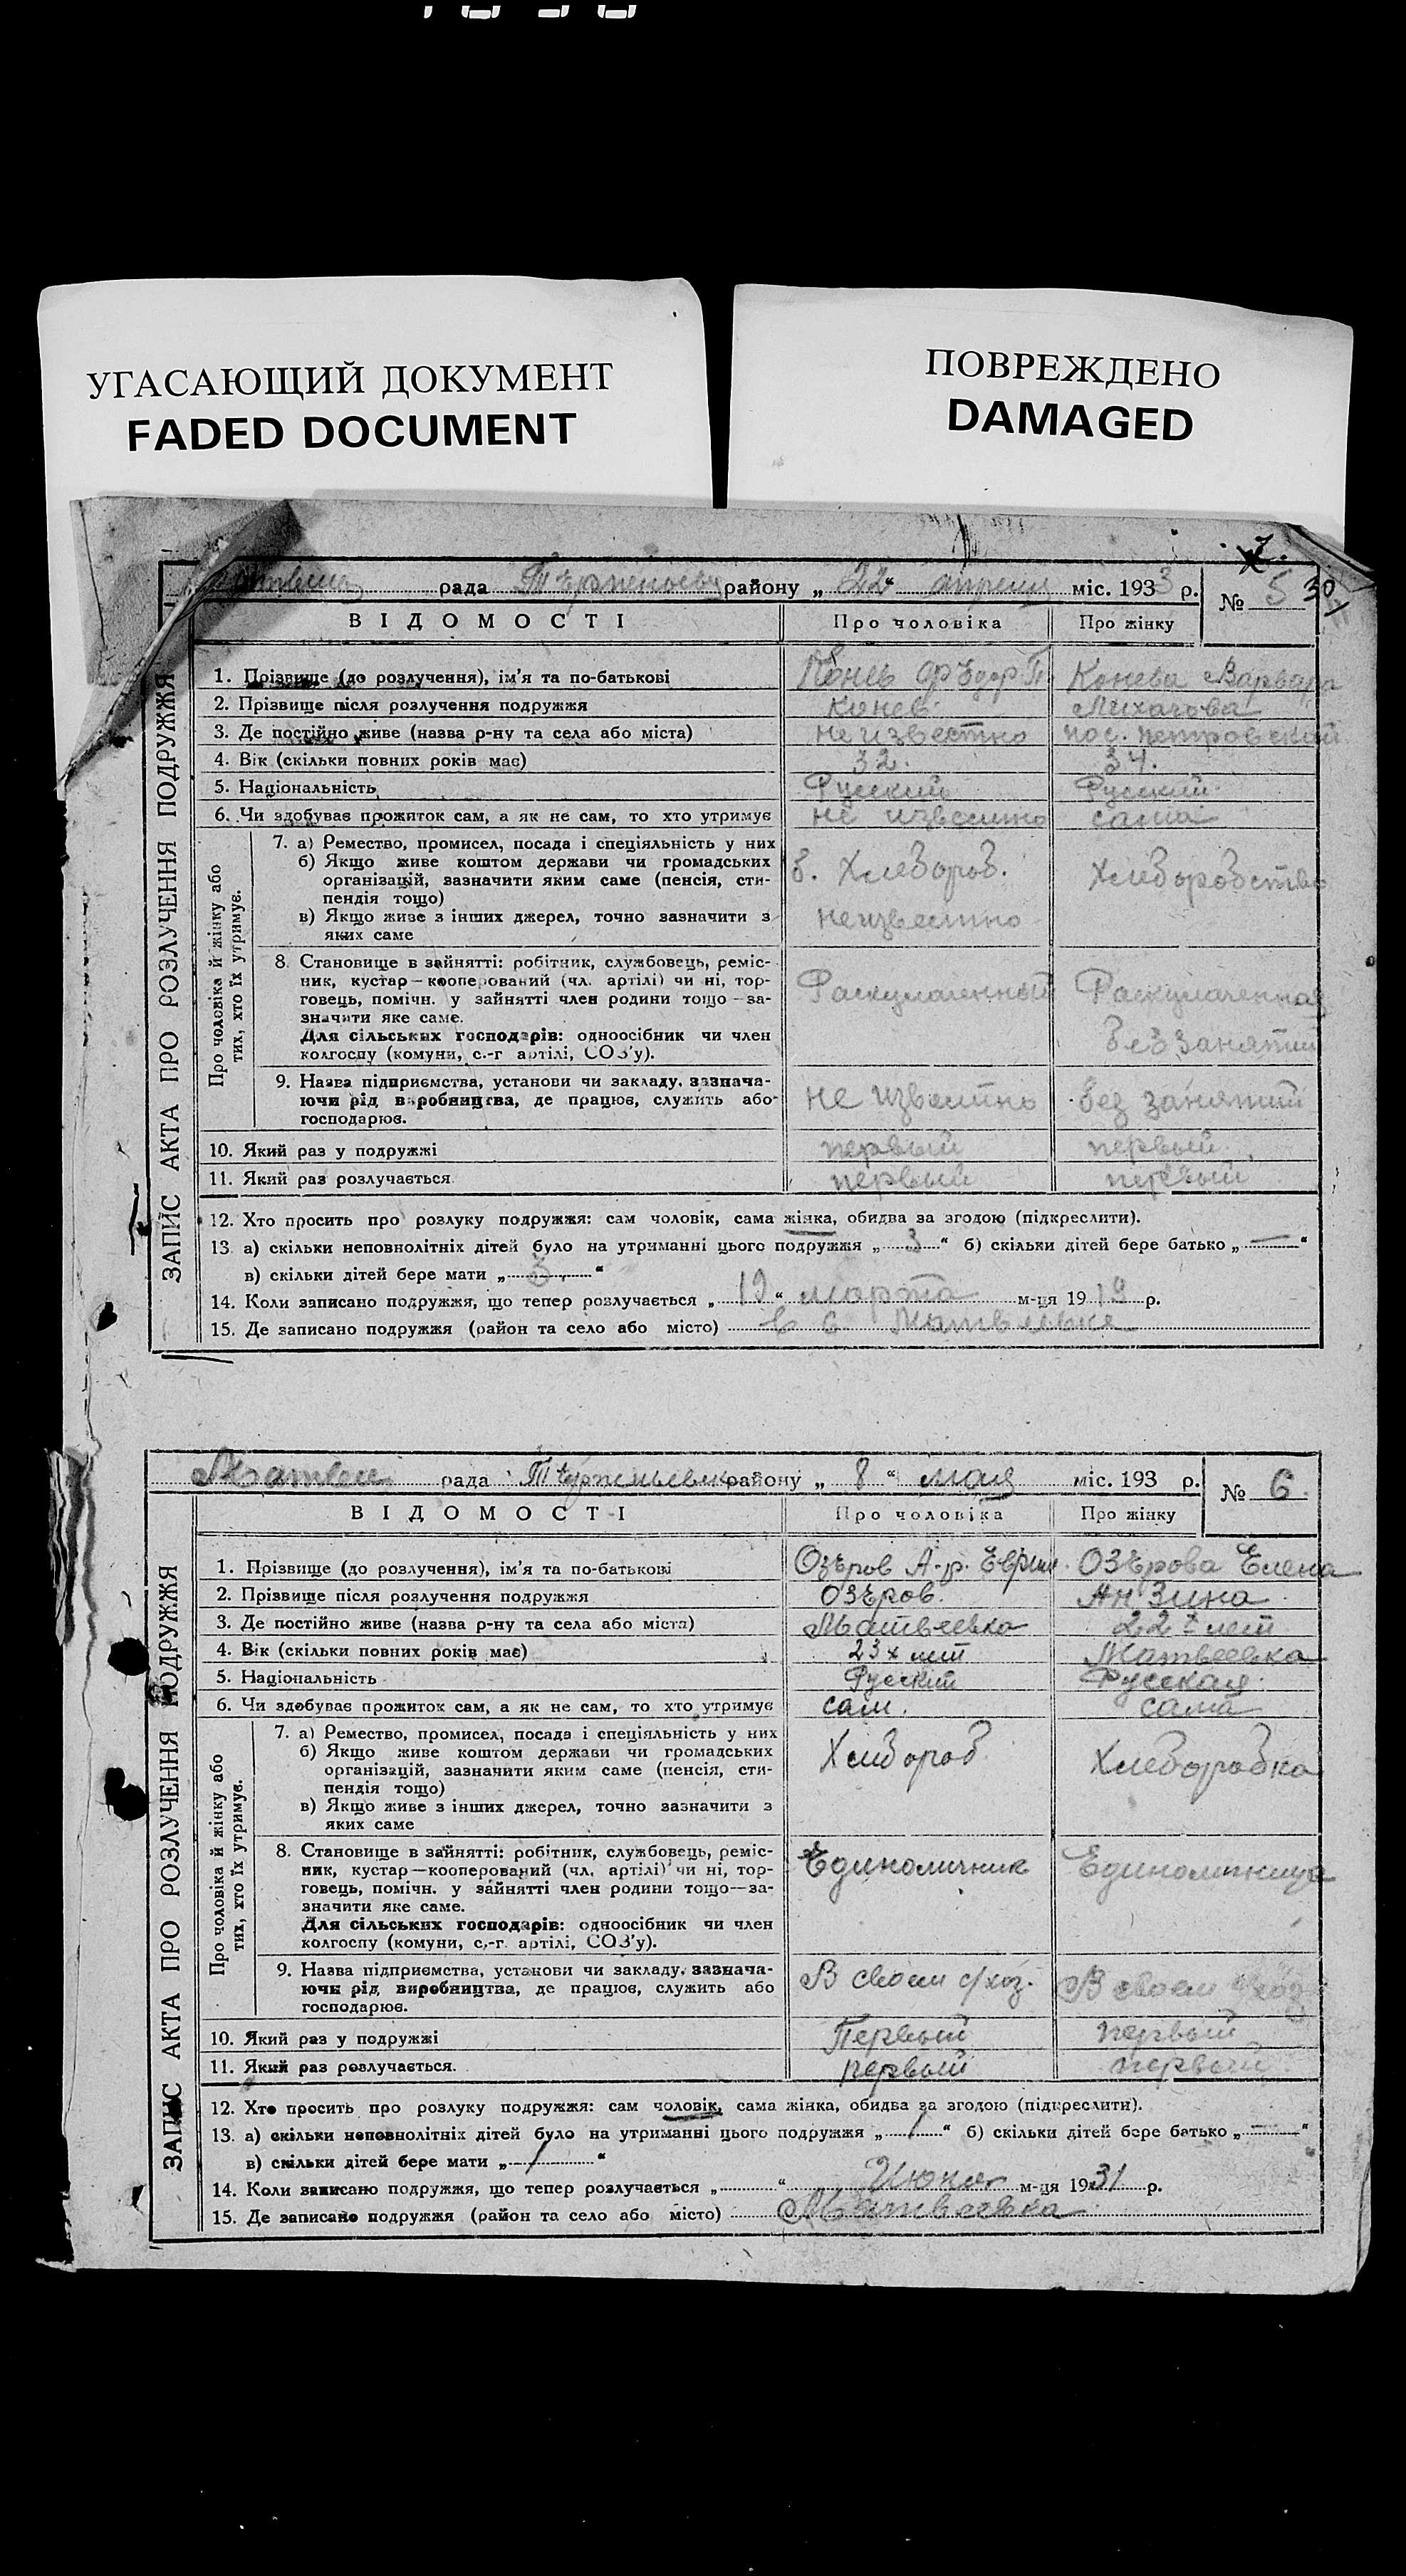 УГАСАЮЩИЙ ДОКУМЕНТ
FADED DOCUMENT
ПОВРЕЖДЕНО
DAMAGED
рада района „ 22 “ апреля міс. 1933 р. № 5 30
ЗАПИС АКТА ПРО РОЗЛУЧЕННЯ ПОДРУЖЖЯ
ВІДОМОСТІ Про чоловіка Про жінку
1. Прізвище (до розлучення), ім'я та по-батькові Конева Варвара
2. Прізвище після розлучення подружжя Конев
3. Де постійно живе (назва р-ну та села або міста) неизвестно пос. петровский
4. Вік (скільки повних років має) 32. 34.
5. Національність Русский Русский
6. Чи здобуває прожиток сам, а як не сам, то хто утримує не известно сама
Про чоловіка й жінку або тих, хто їх утримує.
7. а) Ремество, промисел, посада і спеціяльність у них
б) Якщо живе коштом держави чи громадських
організацій, зазначити яким саме (пенсія, сти-
пендія тощо)
в) Якщо живе з інших джерел, точно зазначити з
яких саме
б. Хлебороб. Хлеборобство
неизвестно
8. Становище в зайнятті: робітник, службовець, реміс-
ник, кустар—кооперований (чл. артілі) чи ні, тор-
говець, помічн. у зайнятті член родини тощо—за-
значити яке саме.
Для сільських господарів: одноосібник чи член
колгоспу (комуни, с.-г артілі, СОЗ'у).
Раскулаченный Раскулаченная
без занятий
9. Назва підприємства, установи чи закладу, зазнача-
ючи рід виробництва, де працює, служить або
господарює.
не известно без занятий
10. Який раз у подружжі первый первый
11. Який раз розлучається первый первый
12. Хто просить про розлуку подружжя: сам чоловік, сама жінка, обидва за згодою (підкреслити).
13 а) скільки неповнолітніх дітей було на утриманні цього подружжя „ 3 “ б) скільки дітей бере батько „ — “
в) скільки дітей бере мати „ 3 “
14. Коли записано подружжя, що тепер розлучається „ 19 “ марта м-ця 1919 р.
15. Де записано подружжя (район та село або місто) в с Матвеевке
рада району „ 8 “ мая міс. 193 р. № 6
ЗАПИС АКТА ПРО РОЗЛУЧЕННЯ ПОДРУЖЖЯ
ВІДОМОСТІ Про чоловіка Про жінку
1. Прізвище (до розлучення), ім'я та по-батькові Озеров Озерова Елена
2. Прізвище після розлучення подружжя Озеров.
3. Де постійно живе (назва р-ну та села або міста) Матвеевка 22 лет
4. Вік (скільки повних років має) 23х лет Матвеевка
5. Національність Русский Русская
6. Чи здобуває прожиток сам, а як не сам, то хто утримує сам. сама
Про чоловіка й жінку або тих, хто їх утримує.
7. а) Ремество, промисел, посада і спеціяльність у них
б) Якщо живе коштом держави чи громадських
організацій, зазначити яким саме (пенсія, сти-
пендія тощо)
в) Якщо живе з інших джерел, точно зазначити з
яких саме
Хлебороб Хлеборобка
8. Становище в зайнятті: робітник, службовець, реміс-
ник, кустар—кооперований (чл. артілі) чи ні, тор-
говець, помічн. у зайнятті член родини тощо—за-
значити яке саме.
Для сільських господарів: одноосібник чи член
колгоспу (комуни, с.-г. артілі, СОЗ'у).
Единоличник Единоличница
9. Назва підприємства, установи чи закладу, зазнача-
ючи рід виробництва, де працює, служить або
господарює.
В своем с/хоз. В своем с/хоз
10. Який раз у подружжі Первый первый
11. Який раз розлучається. первый первый
12. Хто просить про розлуку подружжя: сам чоловік, сама жінка, обидва за згодою (підкреслити).
13. а) скільки неповнолітніх дітей було на утриманні цього подружжя „ 1 “ б) скільки дітей бере батько „ — “
в) скільки дітей бере мати „ 1 “
14. Коли записано подружжя, що тепер розлучається „ “ Июня м-ця 1931 р.
15. Де записано подружжя (район та село або місто) Матвеевка